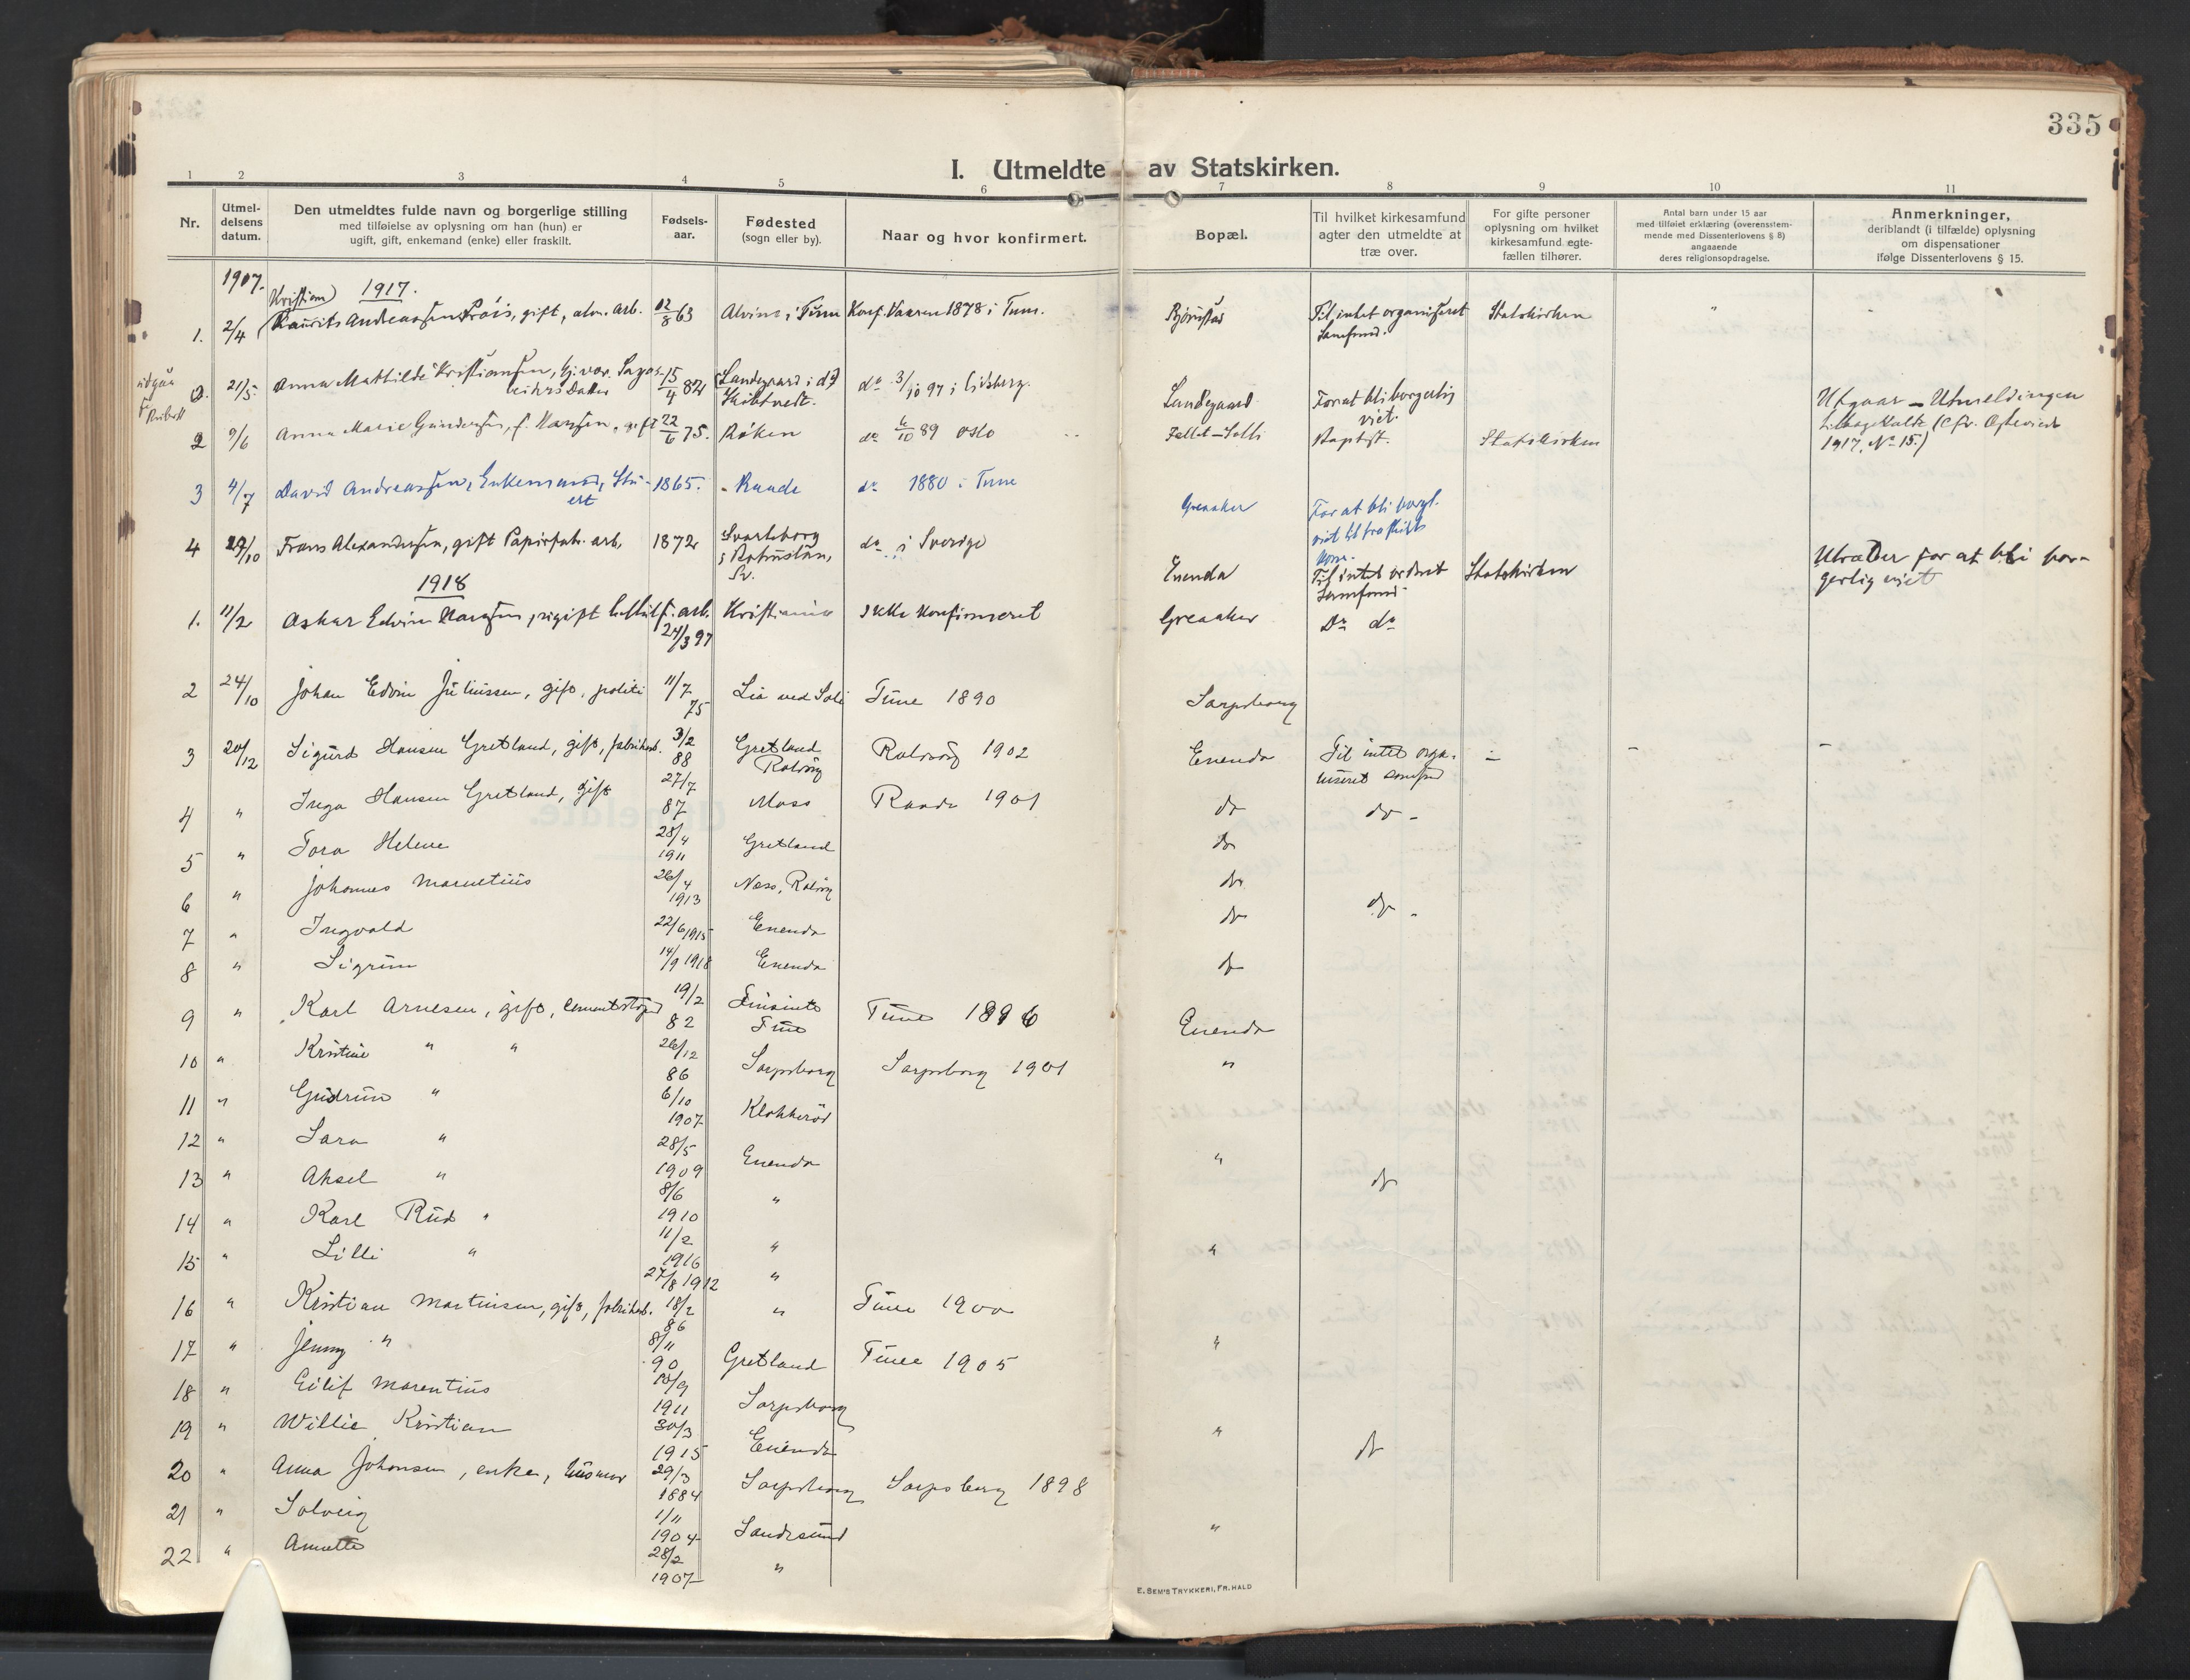 335
I. Utmeldte av Statskirken.
1 2 3 4 5 6 7 8 9 10 11
Nr.
Utmel-
delsens
datum.
Den utmeldtes fulde navn og borgerlige stilling
med tilføielse av oplysning om han (hun) er
ugift, gift, enkemand (enke) eller fraskilt.
Fødsels-
aar.
Fødested
(sogn eller by).
Naar og hvor konfirmert.
Bopæl.
Til hvilket kirkesamfund
agter den utmeldte at
træ over.
For gifte personer
oplysning om hvilket
kirkesamfund egte-
fællen tilhører.
Antal barn under 15 aar
med tilføiet erklæring (overensstem-
mende med Dissenterlovens § 8)
angaaende
deres religionsopdragelse.
Anmerkninger,
deriblandt (i tilfælde) oplysning
om dispensationer
ifølge Dissenterlovens § 15.
1907.
1917.
Kristian
1. 2/4 Andreassen gift, arb. 12/8 63 i Tune Konf. Vaaren 1878 i Tune. Til intet organiseret Statskirken "
Samfund.
21/5 Anna Mathilde Kristiansen, 15/4 82 Landegaard i do 3/10 97 i Landegaard For at bli borgerlig
viet.
Utgaar – Utmeldingen
2 9/6 Anna Marie Gundersen, f. Hansen, gift 22/6 75. Røken do 6/10 89 Oslo Baptist. Statskirken
tilbagekaldt (cfr. 
1917, No 15.)
3 4/7 David Andreassen, Enkemand, 1865. Raade do 1880 i Tune Greaaker For at bli borgl.
viet til fraskilt
4 29/10 Frans Alexandersen, gift Papirfabr. arb. 1872 Svarteborg do i Sverige Enenda Til intet ordnet Statskirken Utræder for at bli bor-
i Bohuslän,
Sv.
Samfund.
gerlig viet
1918
1. 11/2 Oskar Edvin Hansen, ugift arb. 27/3 97 Kristiania Ikke konfirmeret Greaaker Do do
2 24/10 Johan Edvin Juliussen, gift, politi 11/7 75 Lia ved Soli Tune 1890 Sarpsborg
3 20/12 Sigurd Hansen Gretland, gift, fabrikarb. 3/2 88 Gretland Rolvsøy 1902 Enenda Til intet orga- – – –
Rolvsøy
niseret samfund
4 " Inga Hansen Gretland, gift 27/7 87 Moss Raade 1901 do do -
5 " Tora Helene 28/4 1911 Gretland do
6 " Johannes Marentius 26/4 1913 Næs, Rolvsøy do
7 " Ingvald 22/6 1915 Enenda do do -
8 " Sigrun 14/9 1918 Enenda do
9 " Karl Arnesen, gift, cementstøper 19/2 82 Tune 1896 Enenda
Tune
10 " Kristine " " 26/12 86 Sarpsborg Sarpsborg 1901 "
11 " Gudrun " 6/10 1907 Klokkerød
12 " Sara " 28/5 1909 Enenda "
13 " Aksel " 8/6 1910 " do
14 " Karl Rud " 11/2 1916 "
15 " Lilli " 27/8 1912 " "
16 " Kristian Martinsen, gift, fabrikarb. 18/2 86 " Tune 1900
17 " Jenny " 8/11 90 Gretland Tune 1905 "
18 " Eilif Marentius 10/9 1911 Sarpsborg
19 " Willie Kristian 30/3 1915 Enenda "
20 " Anna Johansen, enke, husmor 29/3 1884 Sarpsborg Sarpsborg 1898 do
21 " Solveig 1/11 1904 Sandesund "
22 " Annette 28/2 1907 "
E. SEM'S TRYKKERI, FR.HALD